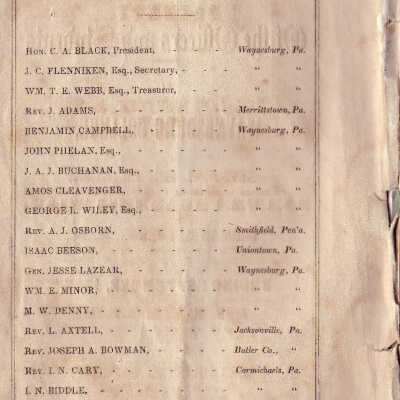 Hon. C. A. BLACK, President, - - - Waynesburg, Pa.
J. C. FLENNIKEN, Esq., Secretary, - - - " "
WM. T. E. WEBB, Esq., Treasurer, - - - " "
Rev. J. ADAMS, - - - - - - Merrittstown, Pa.
BENJAMIN CAMPBELL, - - - - - Waynesburg, Pa.
JOHN PHELAN, Esq., - - - - - " "
J. A. J. BUCHANAN, Esq., - - - - " "
AMOS CLEAVENGER, - - - - - " "
GEORGE L. WILEY, Esq., - - - - " "
Rev. A. J. OSBORN, - - - - - Smithfield, Pen'a.
ISAAC BEESON, - - - - - - Uniontown, Pa.
Gen. JESSE LAZEAR, - - - - - Waynesburg, Pa.
WM. E. MINOR, - - - - - - " "
M. W. DENNY, - - - - - - " "
Rev. L. AXTELL, - - - - - - Jacksonville, Pa.
Rev. JOSEPH A. BOWMAN, - - - - Butler Co., "
Rev. I. N. CARY, - - - - - - Carmichaels, Pa.
I. N. BIDDLE, - - - - - - " "